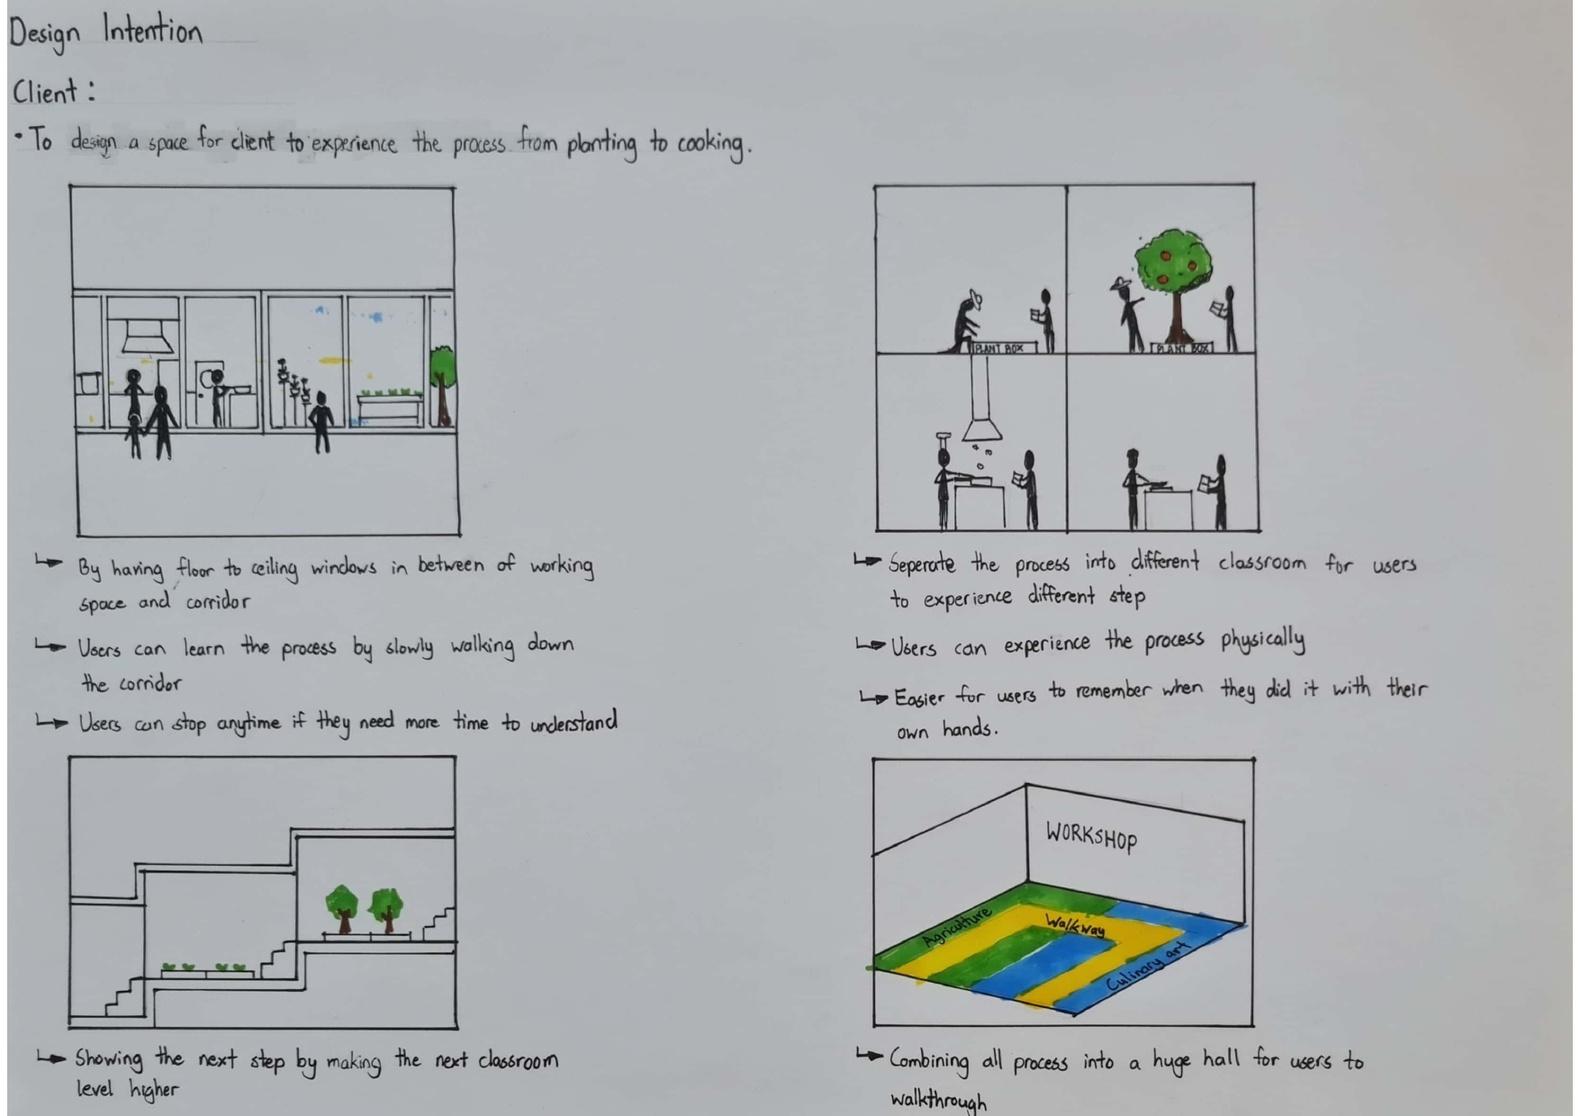 Design Intention
Client :
• To design a space for client to experience the process from planting to cooking.
PLANT BOX
PLANT BOX
↳ By having floor to ceiling windows in between of working
space and corridor
↳ Users can learn the process by slowly walking down
the corridor
↳ Users can stop anytime if they need more time to understand
↳ Seperate the process into different classroom for users
to experience different step
↳ Users can experience the process physically
↳ Easier for users to remember when they did it with their
own hands.
↳ Showing the next step by making the next classroom
level higher
WORKSHOP
Agriculture
Walkway
Culinary art
↳ Combining all process into a huge hall for users to
walkthrough